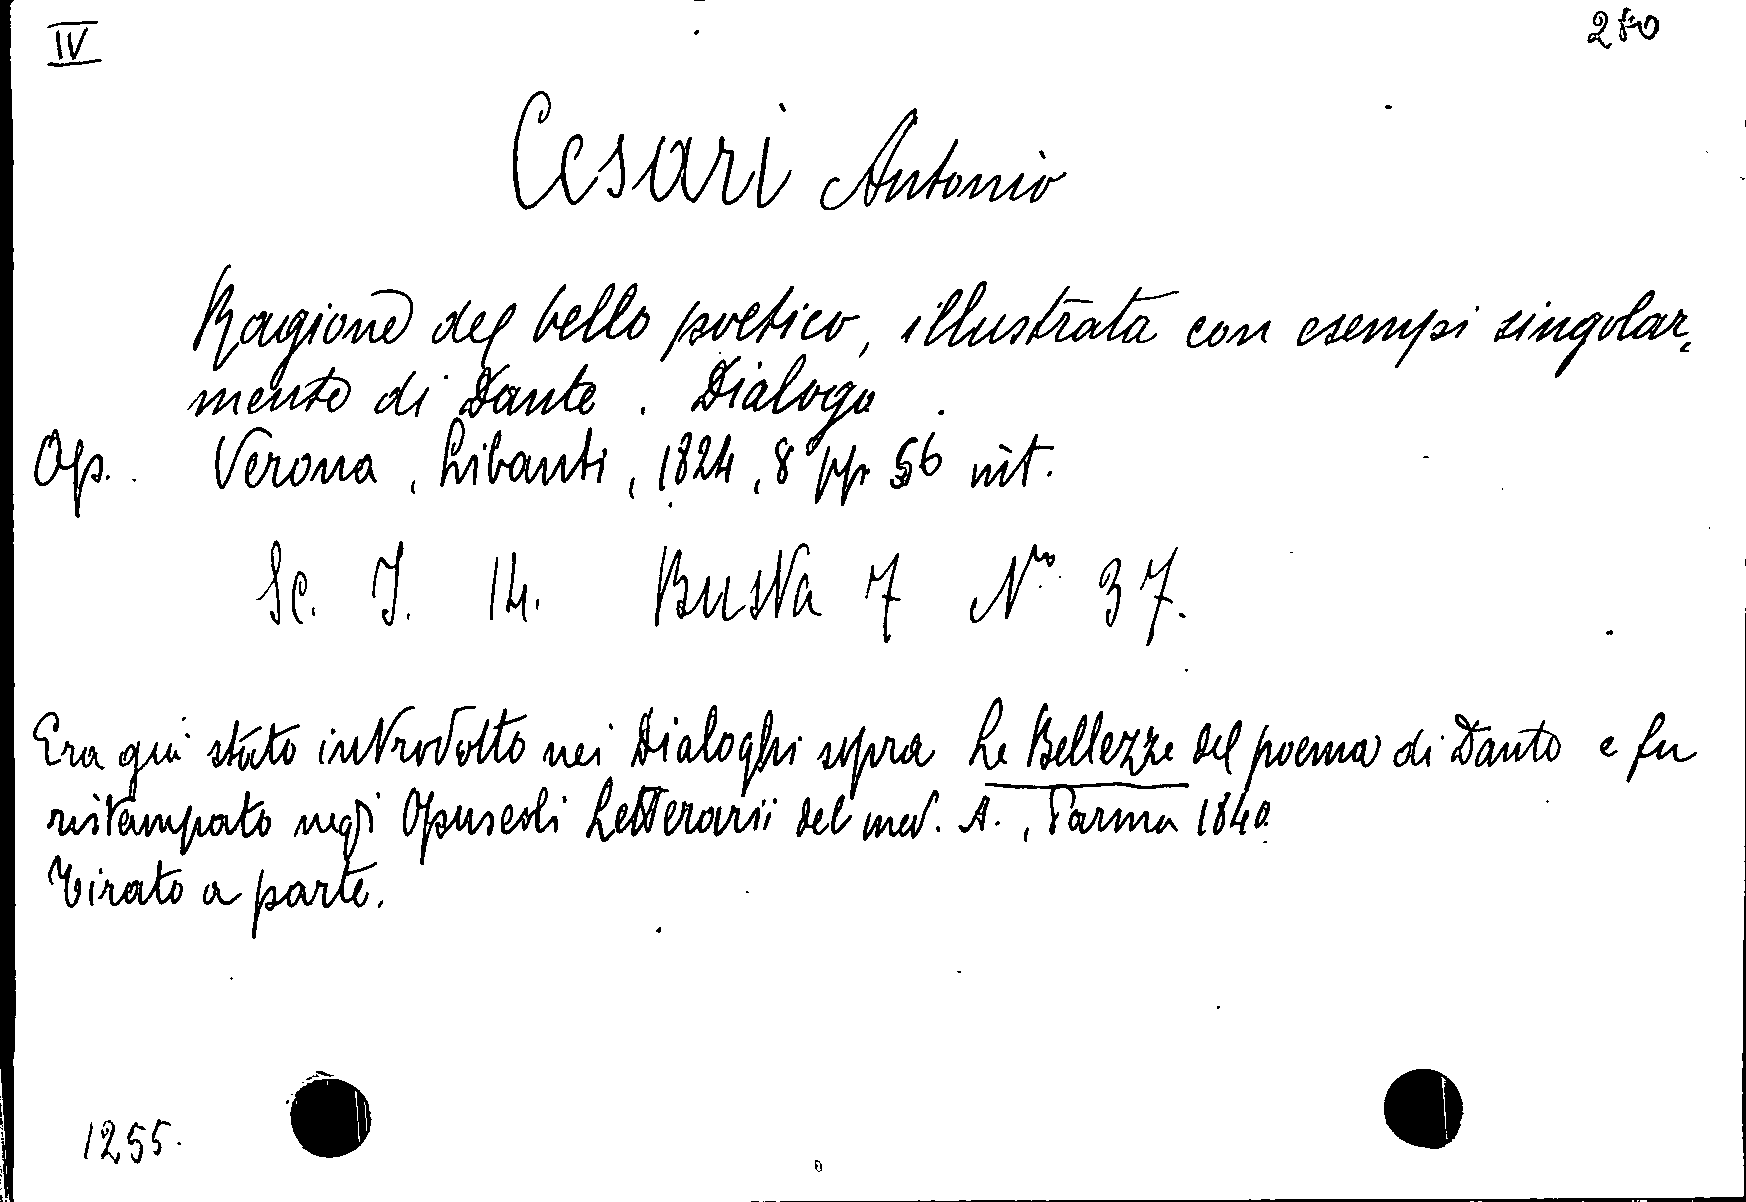 IV
280
Cesari Antonio
Ragione del bello poetico, illustrata con esempi singolar-
mente di Dante. Dialogo.
Op. Verona, Libanti, 1824, 8° pp 56 nit.
Sc. I. 14. Busta 7 No 37.
Era già stato introdotto nei Dialoghi sopra Le Bellezze del poema di Dante e fu
ristampato negli Opuscoli Letterarii del med. A., Parma 1840
Tirato a parte.
1255.